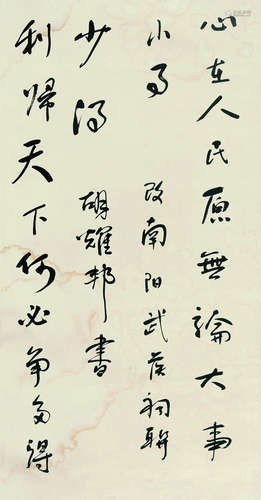 心在人民原無論大事
小事
改南阳武侯祠聯
利歸天下何必争多得
少得
胡耀邦書